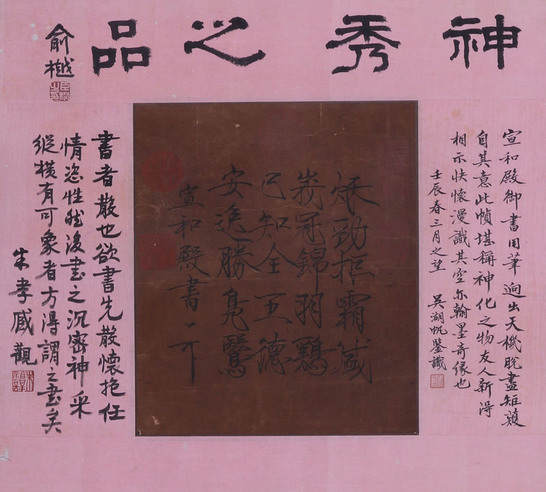 神秀之品
俞樾
宣和殿御書用筆迥出天機脫盡矩矱
自其意此幀堪稱神化之物友人新得
相示快懷漫識其空亦翰墨奇緣也
壬辰春三月之望 吳湖帆鑒識
秋勁拒霜盛
峩冠錦羽鷄
已知全五德
安逸勝鳧鷖
宣和殿書
書者散也欲書先散懷抱任
情恣性然後書之沉密神采
縱橫有可象者方得謂之書矣
朱孝臧觀